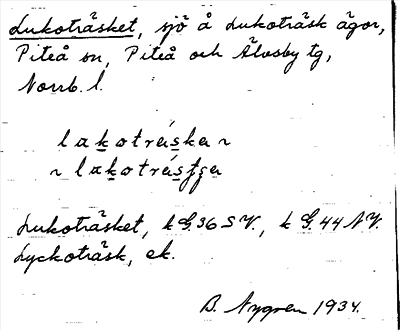 Lukoträsket, sjö å Lukoträsk ägor,
Piteå sn, Piteå och Älvsby tg,
Norrb. l.
lakotrǻska ~
~ lakotrǻsʃʒa
Lukoträsket, k G. 36 S V., k G. 44 N V.
Lyckoträsk, ek.
B. Nygren 1934.